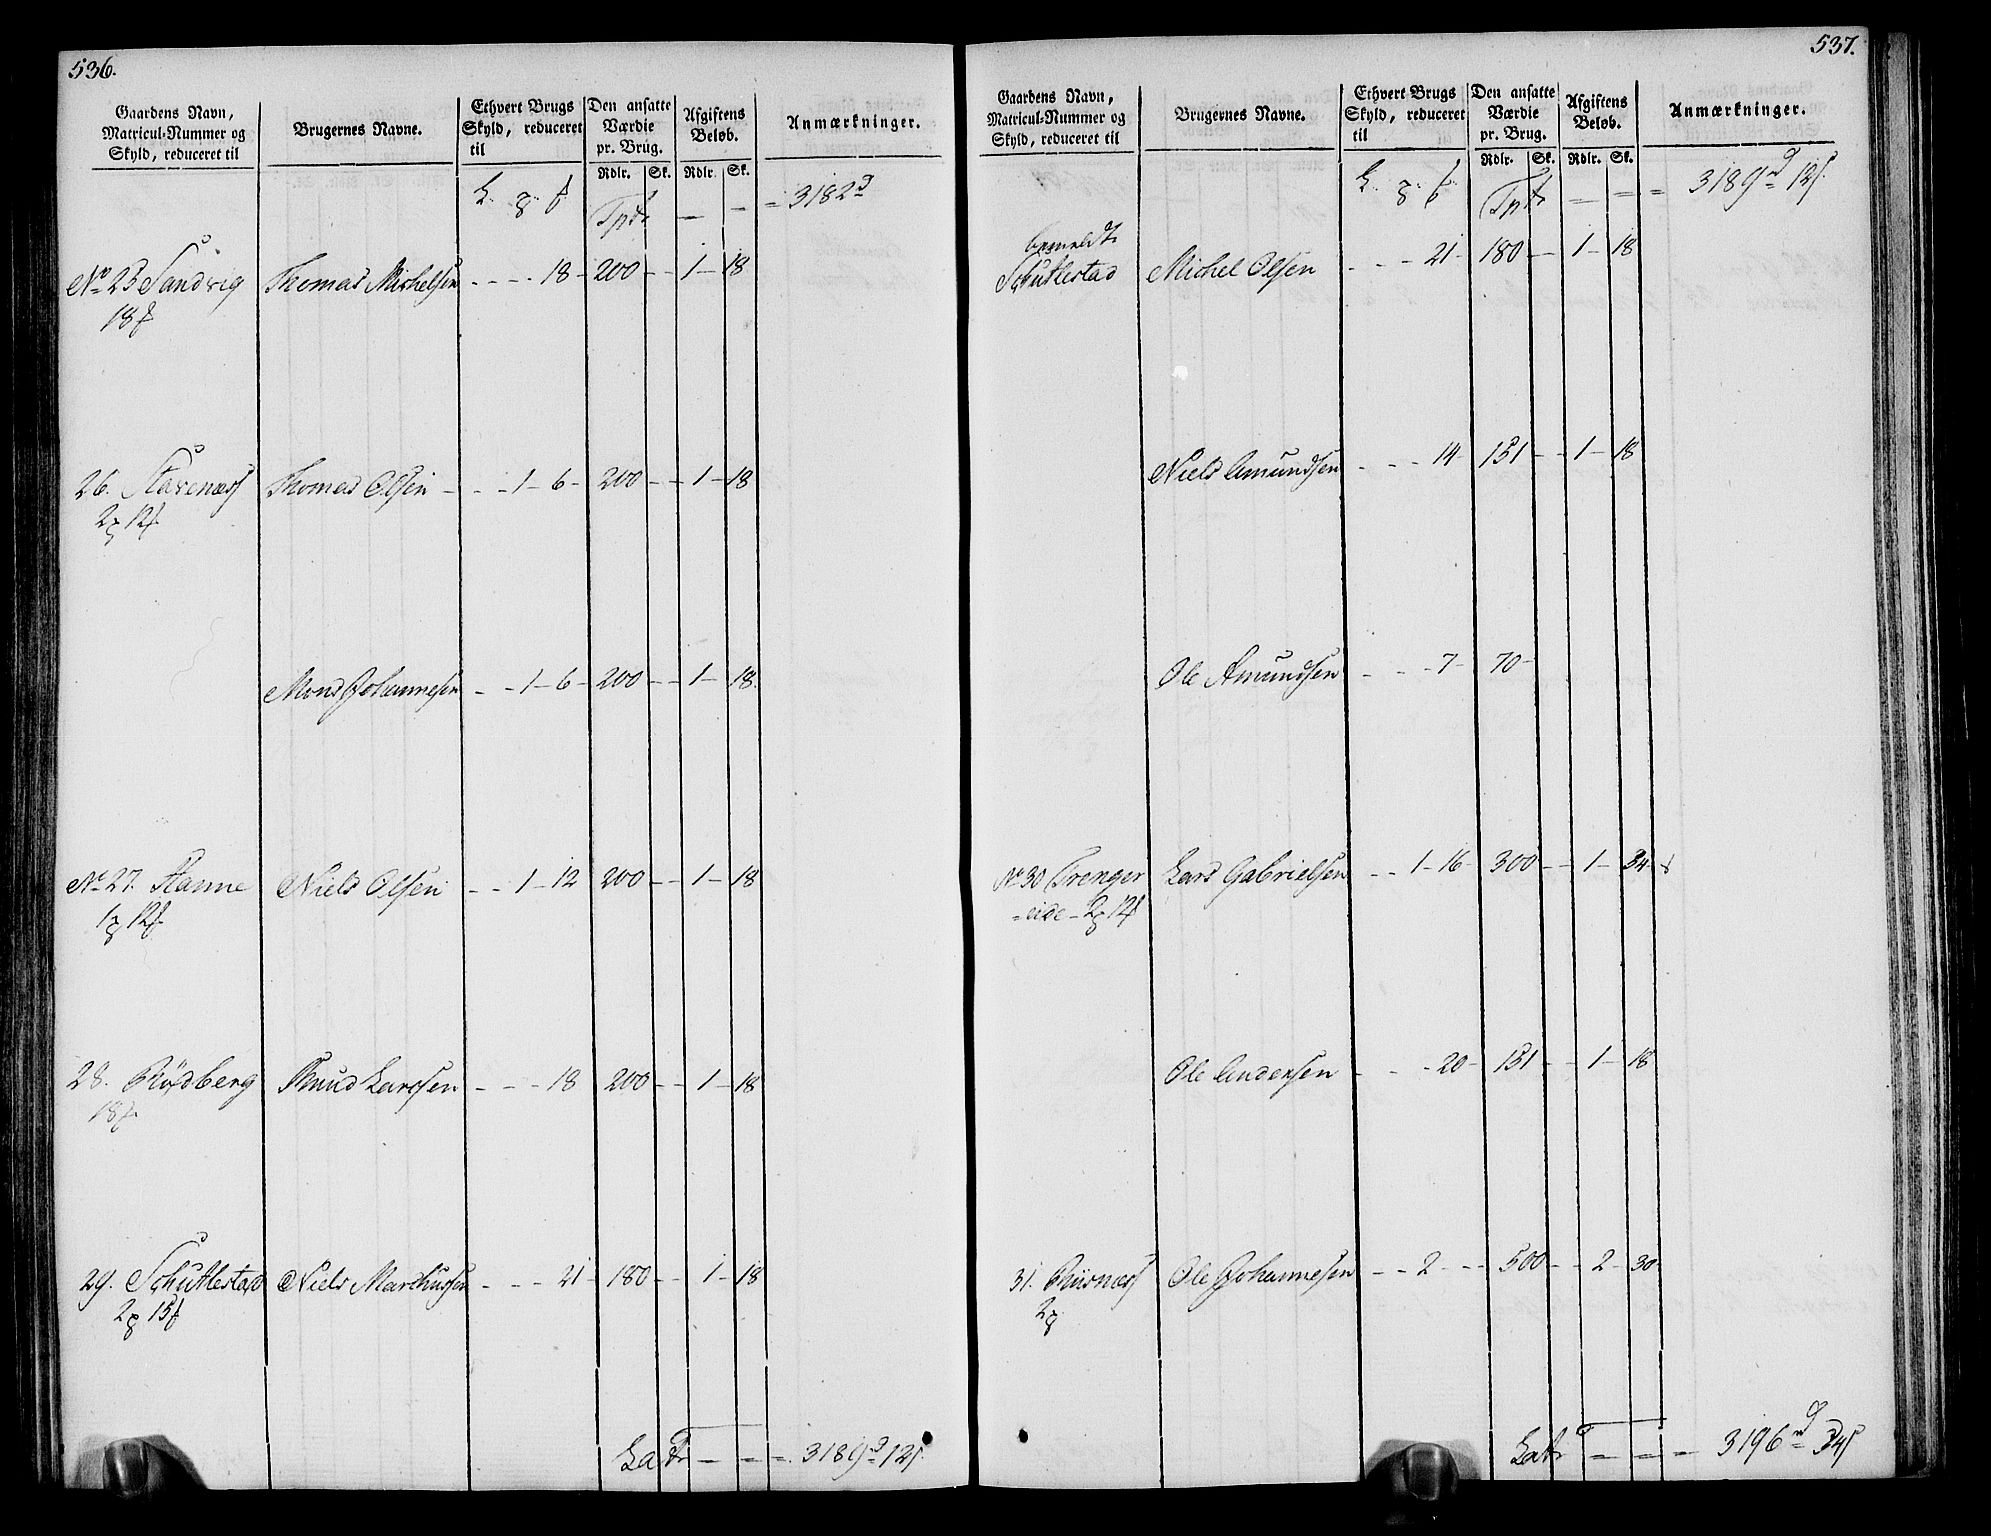 536.
Gaardens Navn, Matricul-Nummer og Skyld, reduceret til | Brugernes Navne. | Ethvert Brugs Skyld, reduceret til | Den ansatte Værdie pr. Brug. | Afgiftens Beløb. | Anmærkninger.
Rdlr. | Sk. | Rdlr. | Sk.
Tptr — — = 3182 d
No 25 Sandvig | Thomas Michelsen | - - - 18 - | 200 - - | 1 - 18
18
26. Starenæss | Thomas Olsen - | - - 1 - 6 - | 200 - - | 1 - 18
2 12
Mons Johannesen | - - 1 - 6 - | 200 - - | 1 - 18.
No 27. Hanne | Niels Olsen | - - 1 - 12 | 200 - - | 1 - 18
1 12
28. Rödberg | Knud Larssen | - - - 18 | 200 - - | 1 - 18
18
29. Schutlestad | Niels Marchussen | - - - 21 - | 180 - - | 1 - 18
2 15
Latr — = = . 3189 d 12 s
537.
Gaardens Navn, Matricul-Nummer og Skyld, reduceret til | Brugernes Navne. | Ethvert Brugs Skyld, reduceret til | Den ansatte Værdie pr. Brug. | Afgiftens Beløb. | Anmærkninger.
Rdlr. | Sk. | Rdlr. | Sk.
Tptr — = = 3189 d 12 s
bemeldte
Schutlestad | Michel Olsen | - - - 21 - | 180 - - | 1 - 18
Niels Amundsen | - - - 14 - | 151 - - | 1 - 18
Ole Amundsen | - - - 7 - | 70 -
No 30 Trenger | Lars Gabrielsen | - - 1 - 16 - | 300 - - | 1 - 34 -
= eide - 2 12
Ole Andersen | - - - 20 - | 151 - - | 1 - 18
31. Riisnæss | Ole Johannesen | - - 2 - - - | 500 - - | 2 - 30
2
Latr = = = 3196 d 34 s